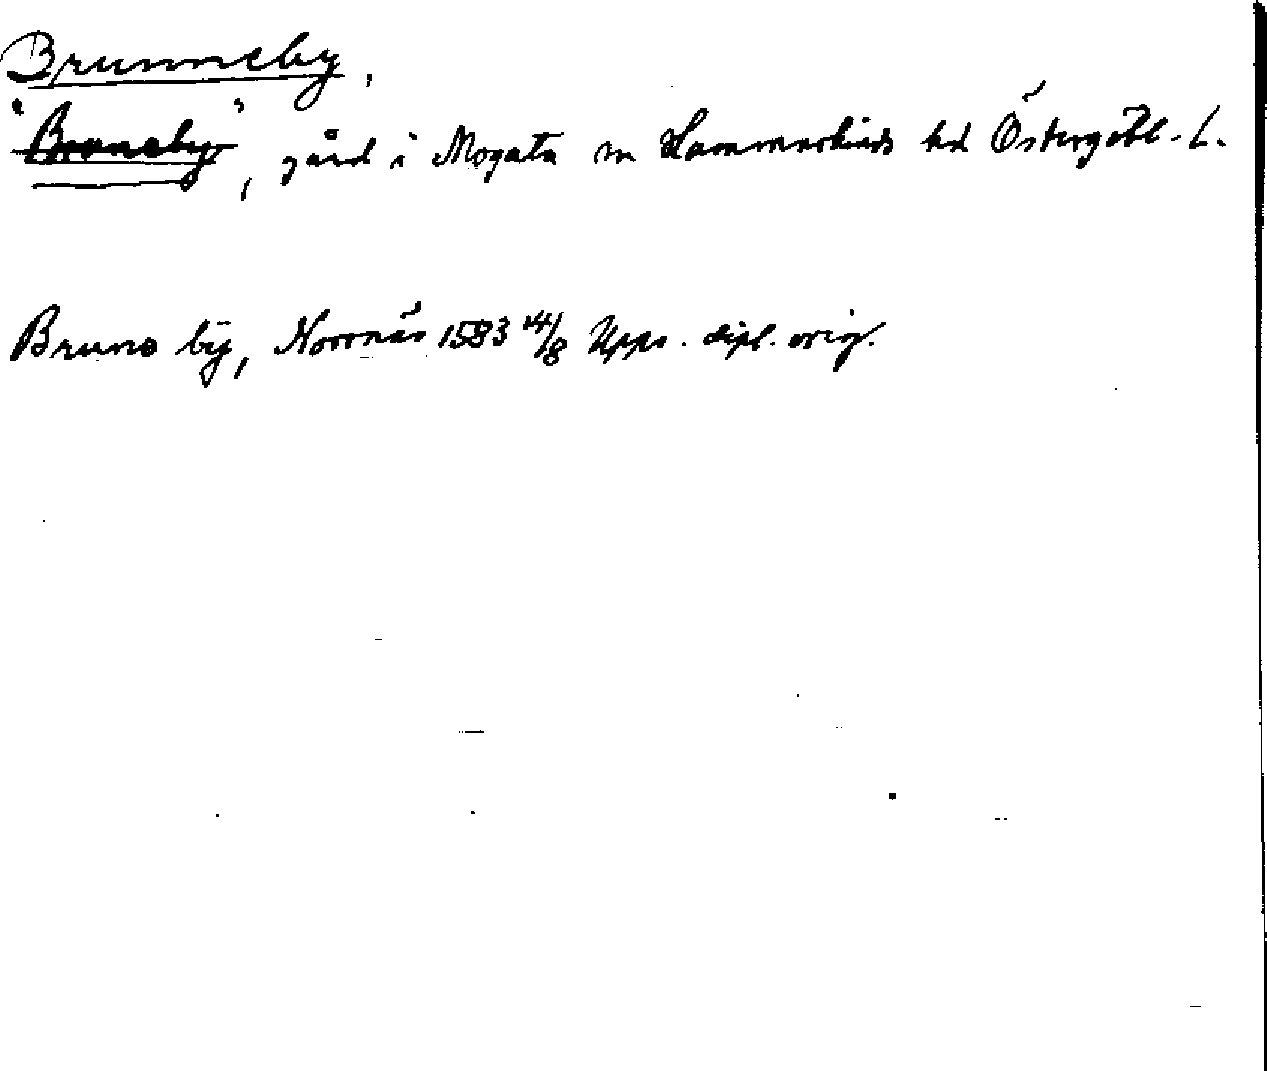 Brunneby,
"Broneby", gård i Mogata sn Hammarkinds hd Östergötl. L.
Bruno by, Norrnäs 1583 14/8 Upps. dipl. orig.